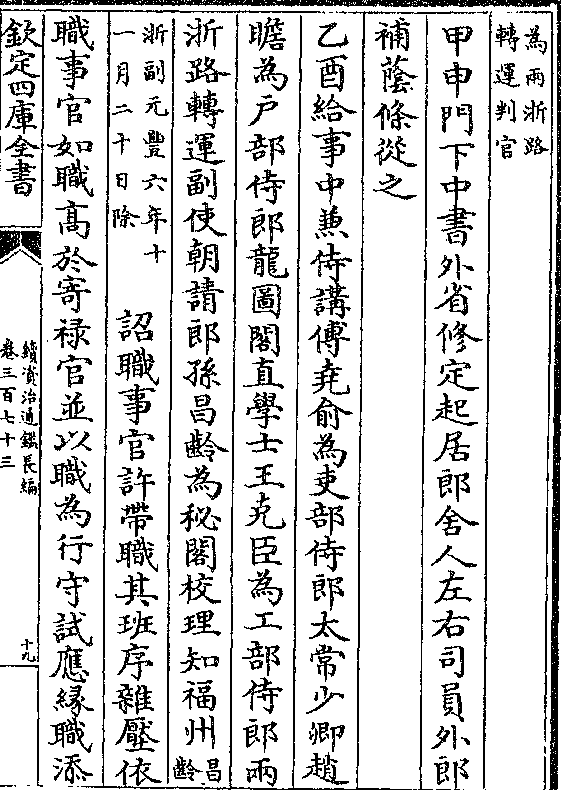 爲兩浙路
轉運判官
甲申門下中書外省修定起居郎舍人左右司員外郎
補蔭條從之
乙酉給事中兼侍講傅堯俞爲吏部侍郎太常少卿趙
瞻爲户部侍郎龍圖閣直學士王克臣爲工部侍郎兩
浙路轉運副使朝請郎孫昌齡爲秘閣校理知福州昌
齡
浙副元豐六年十
一月二十日除
詔職事官許帶職其班序雜壓依
職事官如職髙於寄禄官並以職爲行守試應緣職添
欽定四庫全書
續資治通鑑長編
卷三百七十三
十九